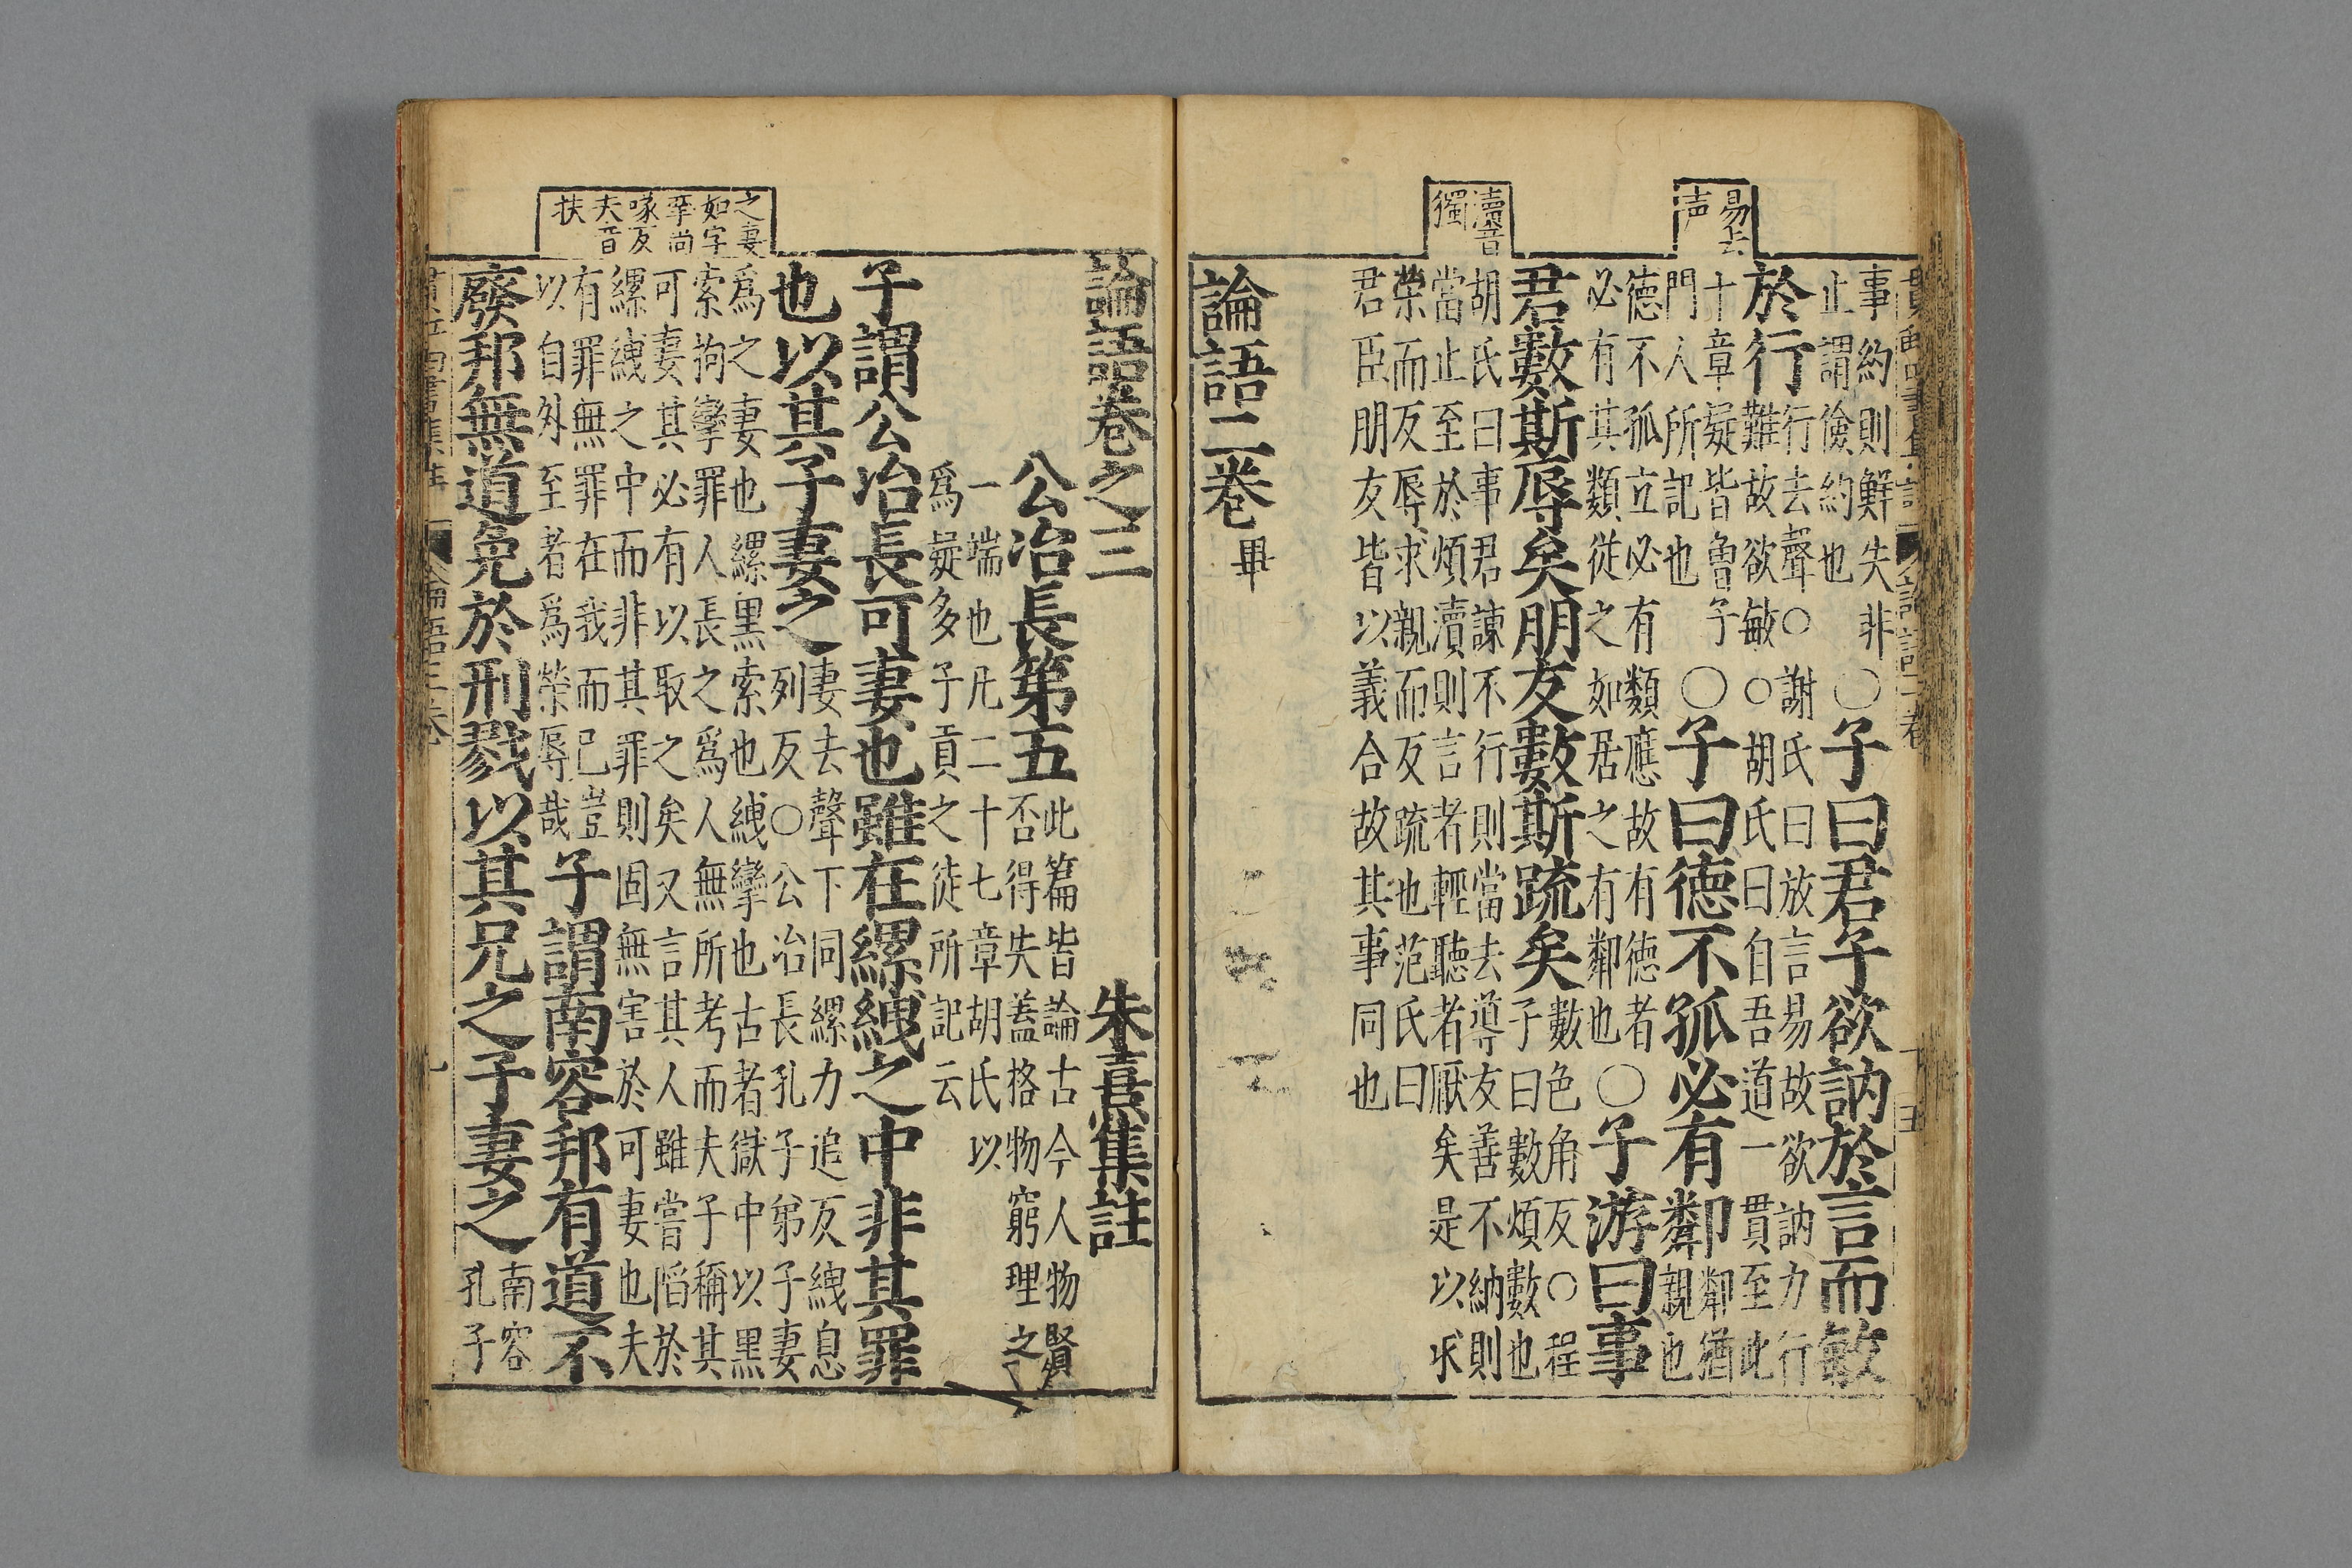 易去
声
瀆音
獨
事約則鮮失非
止謂儉約也
○子曰君子欲訥於言而敏
於行
行去聲○謝氏曰放言易故欲訥力行
難故欲敏○胡氏曰自吾道一貫至此
十章疑皆曾子
門人所記也
○子曰德不孤必有鄰
鄰猶
親也
德不孤立必有類應故有德者
必有其類從之如居之有鄰也
○子游曰事
君數斯辱矣朋友數斯疏矣
數色角反○程
子曰數煩數也
胡氏曰事君諫不行則當去導友善不納則
當止至於煩瀆則言者輕聽者厭矣是以求
榮而反辱求親而反疏也范氏曰
君臣朋友皆以義合故其事同也
論語二卷畢
之妻
如字
孿尚
喙反
夫音
扶
論語卷之三 朱熹集註
公冶長第五
此篇皆論古今人物賢
否得失蓋格物窮理之
一端也凡二十七章胡氏以
爲疑多子貢之徒所記云
子謂公冶長可妻也雖在縲絏之中非其罪
也以其子妻之
妻去聲下同縲力追反絏息
列反○公冶長孔子弟子妻
爲之妻也縲黑索也絏攣也古者獄中以黑
索拘攣罪人長之爲人無所考而夫子稱其
可妻其必有以取之矣又言其人雖嘗陷於
縲絏之中而非其罪則固無害於可妻也夫
有罪無罪在我而已豈
以自外至者爲榮辱哉
子謂南容邦有道不
廢邦無道免於刑戮以其兄之子妻之
南容
孔子